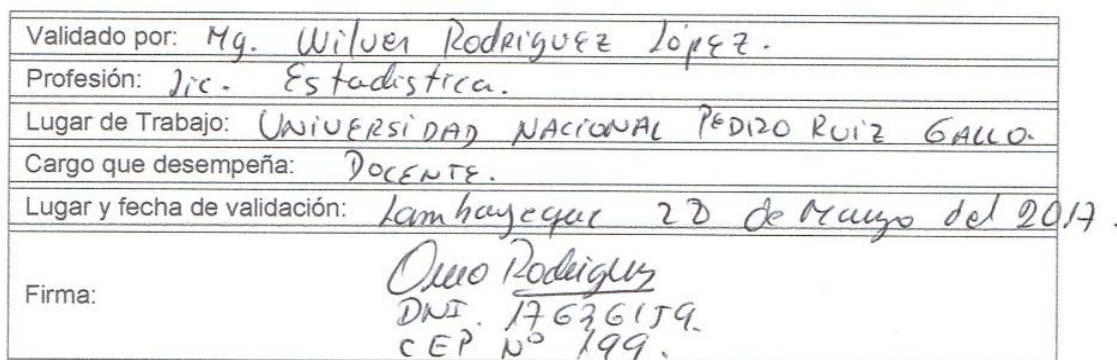 Validado por: Mg. Wilver Rodriguez López.
Profesión: Lic. Estadistica.
Lugar de Trabajo: UNIVERSIDAD NACIONAL PEDRO RUIZ GALLO.
Cargo que desempeña: DOCENTE.
Lugar y fecha de validación: Lambayeque de Marzo del 2017.
Firma: Rodriguez
DNI. 17636159.
CEP Nº 199.